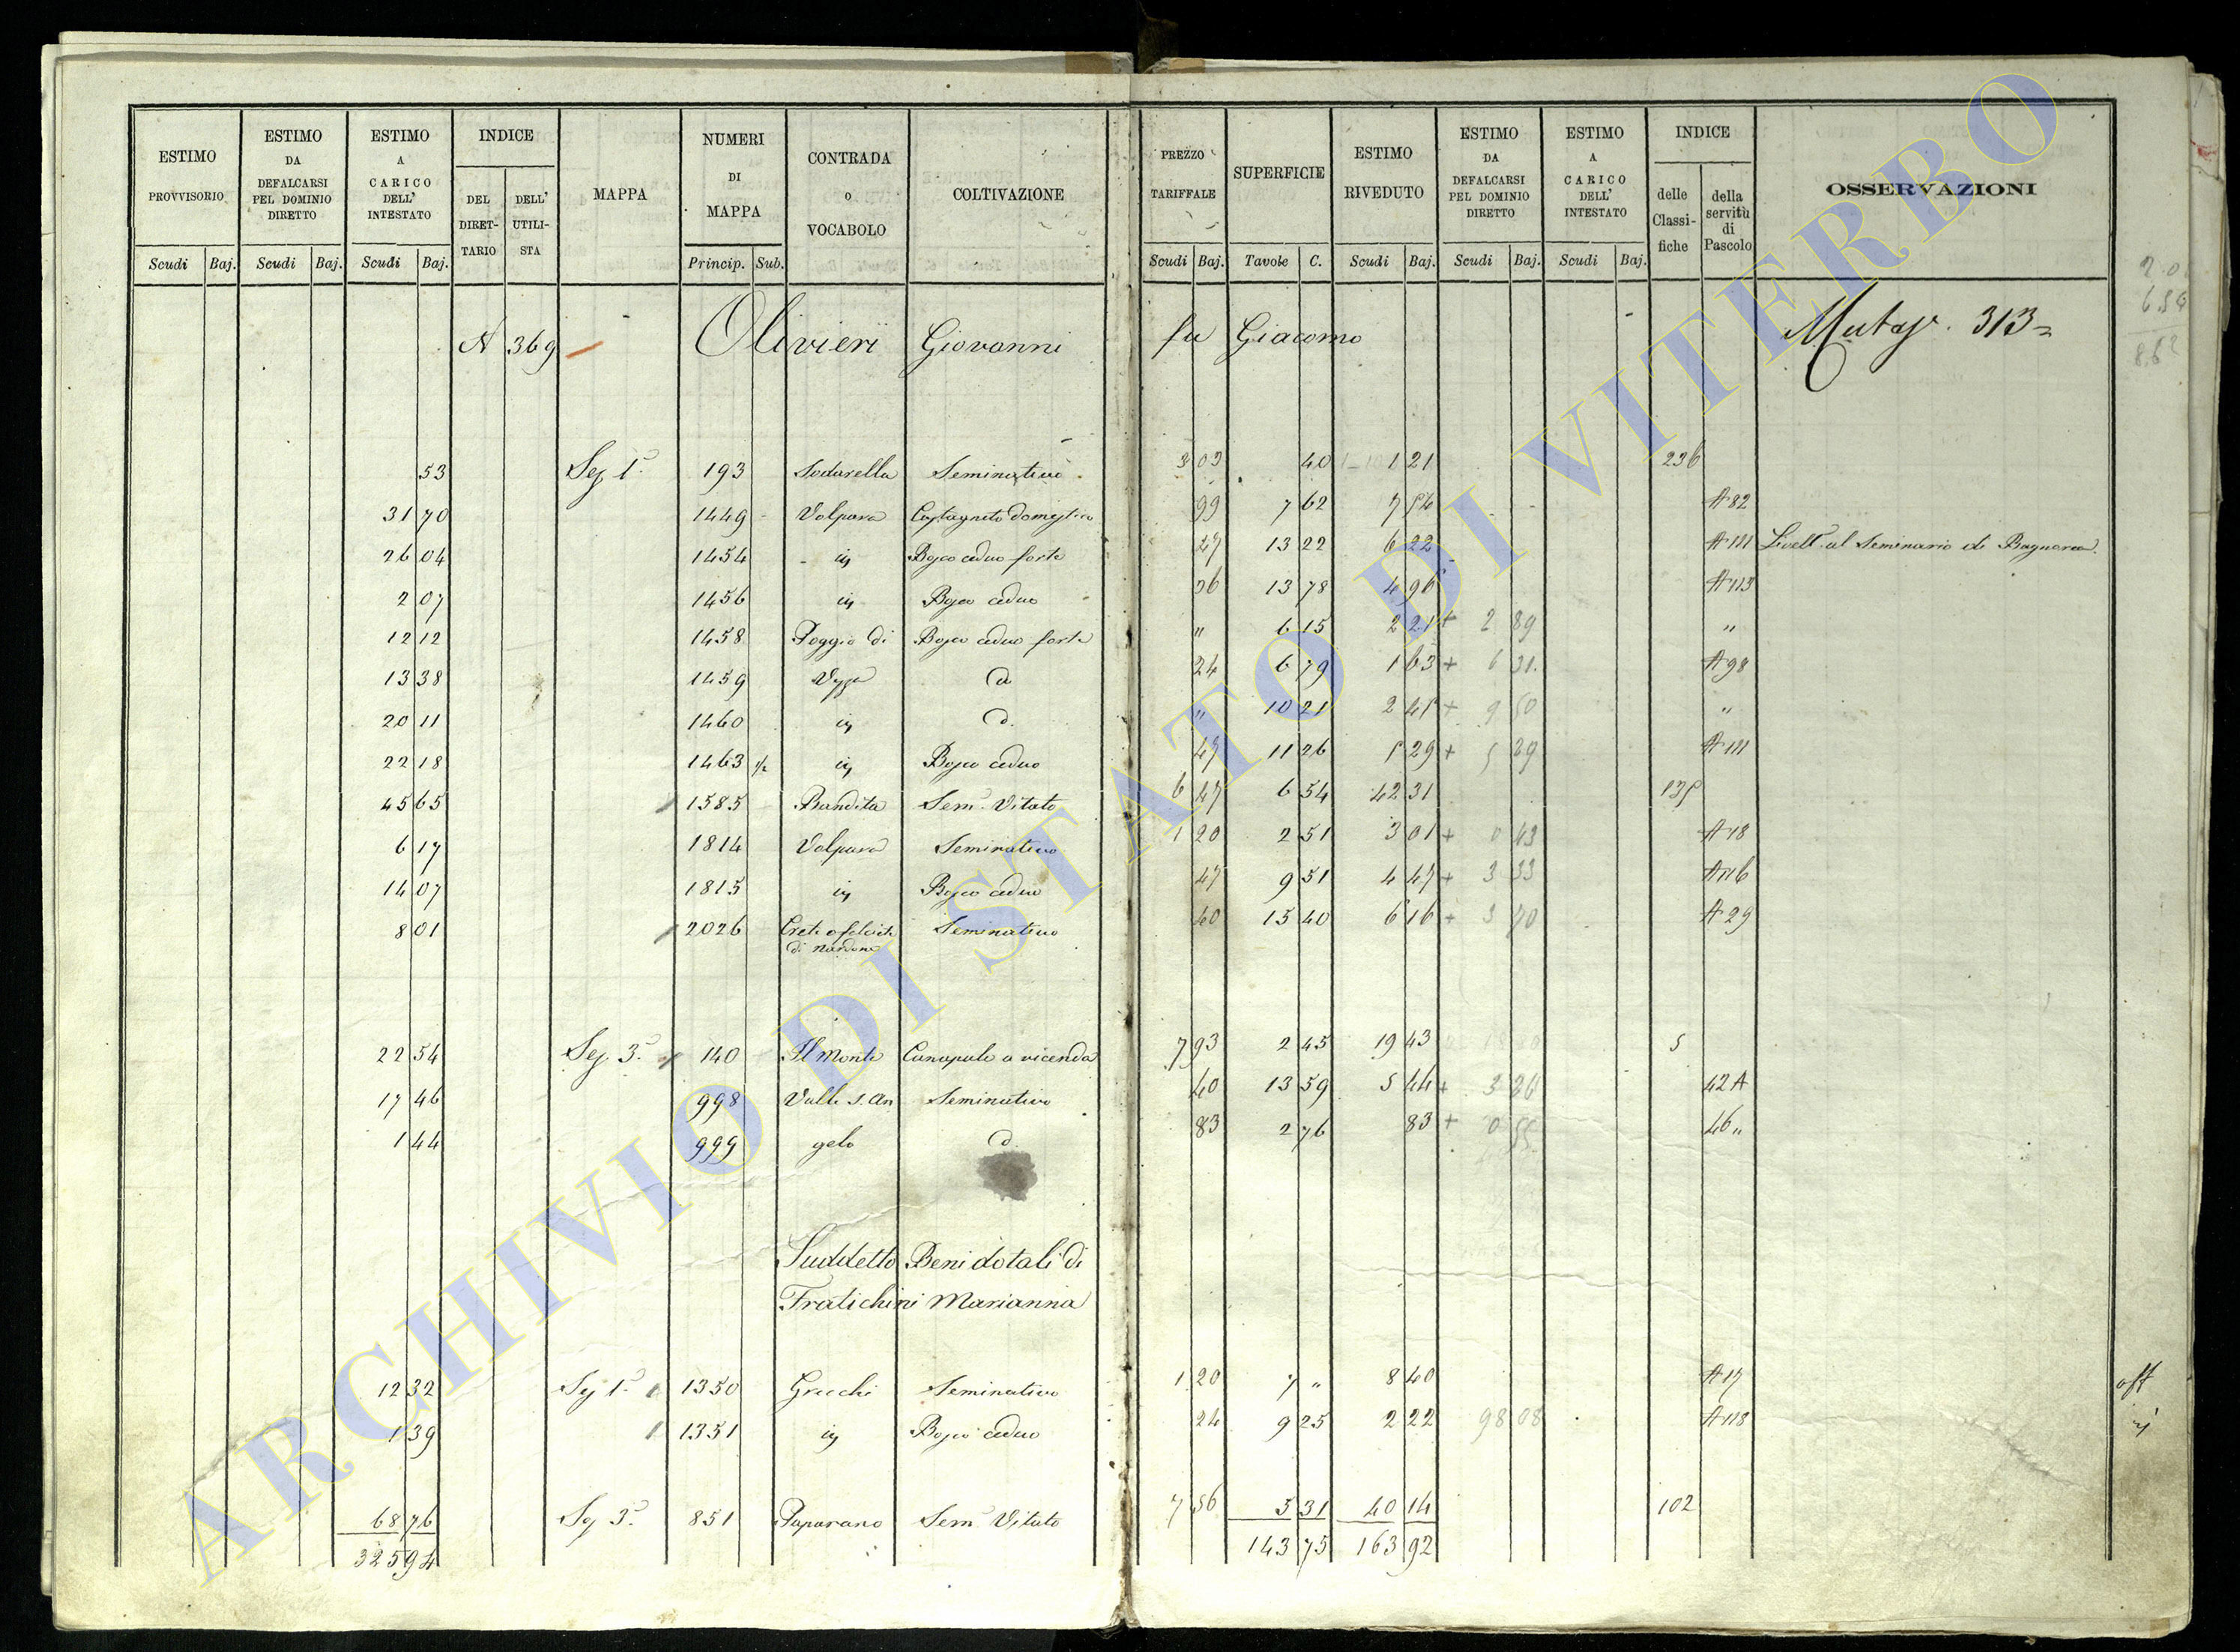 ESTIMO PROVVISORIO Scudi Baj.
ESTIMO DA DEFALCARSI PEL DOMINIO DIRETTO Scudi Baj.
ESTIMO A CARICO DELL' INTESTATO Scudi Baj.
INDICE DEL DIRET-TARIO DELL' UTILI-STA
MAPPA
NUMERI DI MAPPA Princip. Sub.
CONTRADA O VOCABOLO
COLTIVAZIONE
PREZZO TARIFFALE Scudi Baj.
SUPERFICIE Tavole C.
ESTIMO RIVEDUTO Scudi Baj.
ESTIMO DA DEFALCARSI PEL DOMINIO DIRETTO Scudi Baj.
ESTIMO A CARICO DELL' INTESTATO Scudi Baj.
INDICE delle Classi-fiche della servitù di Pascolo
OSSERVAZIONI
N 369 Olivieri Giovanni fu Giacomo 313
53 Sez 1ª 193 Sodarella Seminativo 3 03 40 1 21 236
31 70 1449 Volpara Castagneto domestico 99 7 62 7 54 A 82
26 04 1454 in Bosco ceduo forte 47 13 22 6 22 A 111 Livell. al Seminario di Bagnorea.
2 07 1456 in Bosco ceduo 36 13 78 4 96 A 113
12 12 1458 Poggio di Bosco ceduo forte " 6 15 2 21 + 2 89 "
13 38 1459 d 24 6 79 1 63 + 6 31 A 98
20 11 1460 in d. " 10 21 2 45 + 9 50 "
22 18 1463 1/2 in Bosco ceduo 47 11 26 5 29 + 5 29 A 111
45 65 1585 Bandita Sem. Vitato 6 47 6 54 42 31 135
6 17 1814 Volpara Seminativo 1 20 2 51 3 01 + 0 43 A 18
14 07 1815 in Bosco ceduo 47 9 51 4 47 + 3 33 A 116
8 01 2026 di Nardone Seminativo 40 15 40 6 16 + 3 70 A 29
22 54 Sez. 3ª 140 Il Monte Canapule a vicenda 7 93 2 45 19 43 5
17 46 998 Valle S. An Seminativo 40 13 59 5 44 + 3 26 42 A
1 44 999 gelo d. 83 2 76 83 + 0 55 46 "
Suddetto Beni dotali di
Fratichini Marianna
12 32 Sez 1ª 1350 Grecchi Seminativo 1 20 7 " 8 40 A 17
1 39 1351 in Bosco ceduo 24 9 25 2 22 98 08 A 118
68 76 Sez 3ª 851 Paparano Sem. Vitato 7 56 5 31 40 14 102
325 94 143 75 163 92
ARCHIVIO DI STATO DI VITERBO